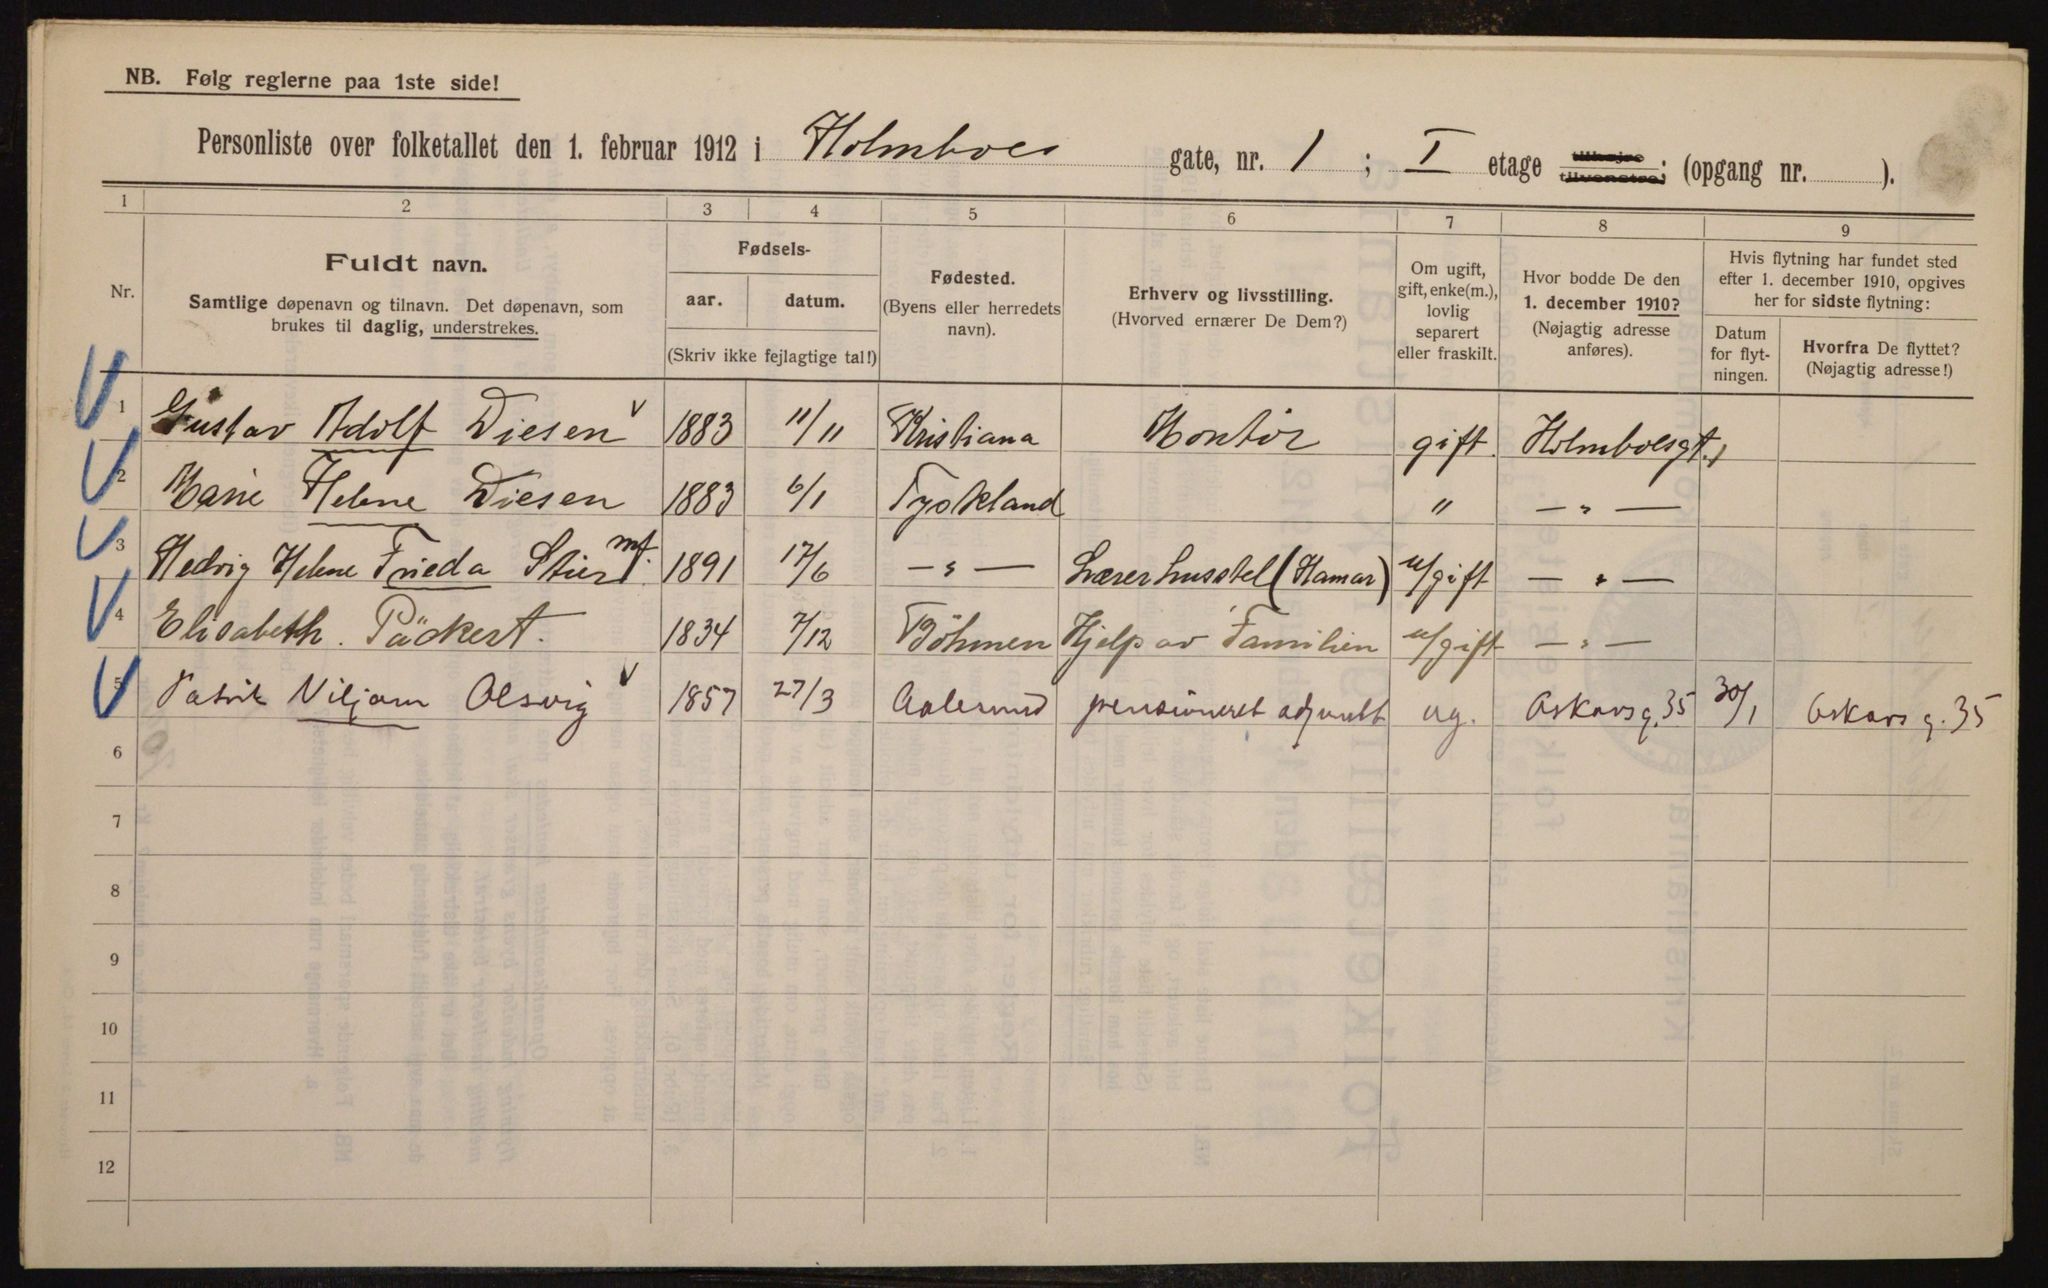 NB. Følg reglerne paa 1ste side!
Personliste over folketallet den 1. februar 1912 i Holmboes gate, nr. 1 ; I etage tilhøjre tilvenstre; (opgang nr. ).
1 2 3 4 5 6 7 8 9
Nr.
Fuldt navn.
Samtlige døpenavn og tilnavn. Det døpenavn, som
brukes til daglig, understrekes.
Fødsels-
aar. datum.
(Skriv ikke fejlagtige tal!)
Fødested.
(Byens eller herredets
navn).
Erhverv og livsstilling.
(Hvorved ernærer De Dem?)
Om ugift,
gift, enke(m.),
lovlig
separert
eller fraskilt.
Hvor bodde De den
1. december 1910?
(Nøjagtig adresse
anføres).
Hvis flytning har fundet sted
efter 1. december 1910, opgives
her for sidste flytning:
Datum
for flyt-
ningen.
Hvorfra De flyttet?
(Nøjagtig adresse!)
1 Gustav Adolf Diesen 1883 11/11 Kristiana Montör gift. Holmboesgt. 1
2 Marie Helene Diesen 1883 6/1 Tyskland " — " —
3 Hedvig Helene Frieda 1891 17/6 — " — Lærer husstel (Hamar) u/gift — " —
4 Elisabeth. Päckert. 1834 7/12 Böhmen Hjelp av Familien u/gift — " —
5 Patrik Viljam Olsvig 1857 27/3 Aalesund pensioneret adjunkt ug. Oskarsg. 35 30/1 Oskars g. 35
6
7
8
9
10
11
12